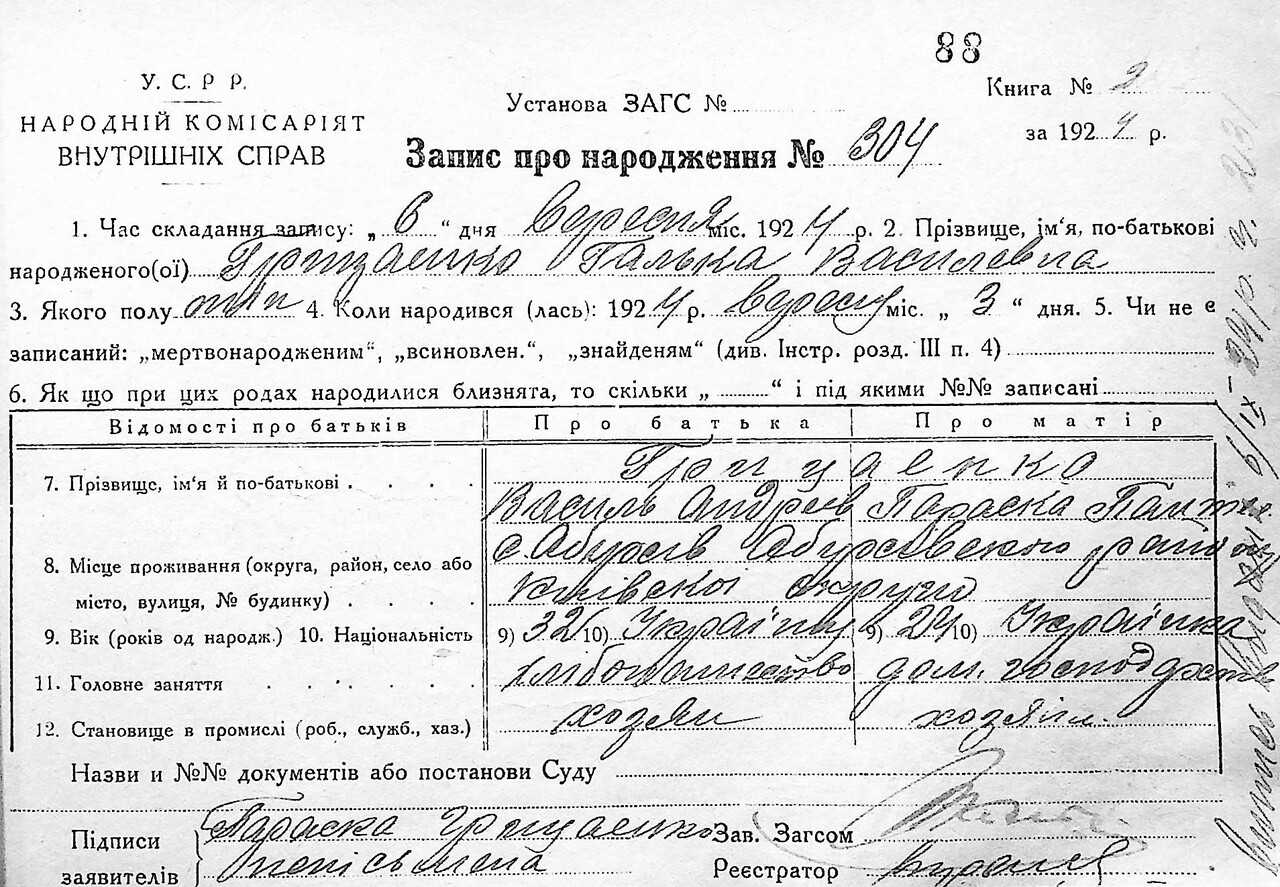 88
У. С. Р Р.
НАРОДНІЙ КОМІСАРІЯТ
ВНУТРІШНІХ СПРАВ
Установа ЗАГС №
Книга № 2
за 1924 р.
Запис про народження № 304
1. Час складання запису: „ 6 “ дня вересня міс. 1924 р. 2. Прізвище, ім‘я, по-батькові
народженого(ої) Грицаенко Галька Василевна
3. Якого полу жін 4. Коли народився (лась): 1924 р. вересня міс. „ 3 “ дня. 5. Чи не є
записаний: „мертвонародженим“, „всиновлен.“, „знайденям“ (див. Інстр. розд. III п. 4)
6. Як що при цих родах народилися близнята, то скільки „ “ і під якими №№ записані
Відомості про батьків Про батька Про матір
7. Прізвище, ім‘я й по-батькові Грицаенко
Василь Андреев Параска
8. Місце проживання (округа, район, село або с. Обухов Обуховского
місто, вулиця, № будинку) Київскої округи
9. Вік (років од народж.) 10. Національність 9) 32 10) 9) 24 10) Українка
11. Головне заняття дом. господарство
12. Становище в промислі (роб., служб., хаз.) хозяин
Назви и №№ документів або постанови Суду
Підписи Параска Грицаенко Зав. Загсом
заявителів неписьмена Реєстратор
6/IX-24 р.